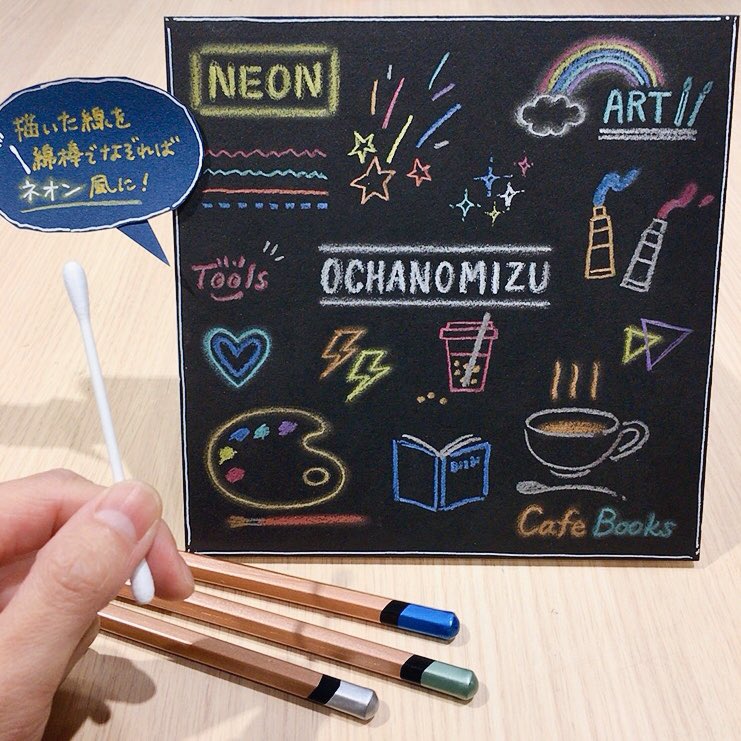 描いた線を
綿棒でなぞれば
ネオン風に!
NEON
ART
Tools
OCHANOMIZU
Cafe Books